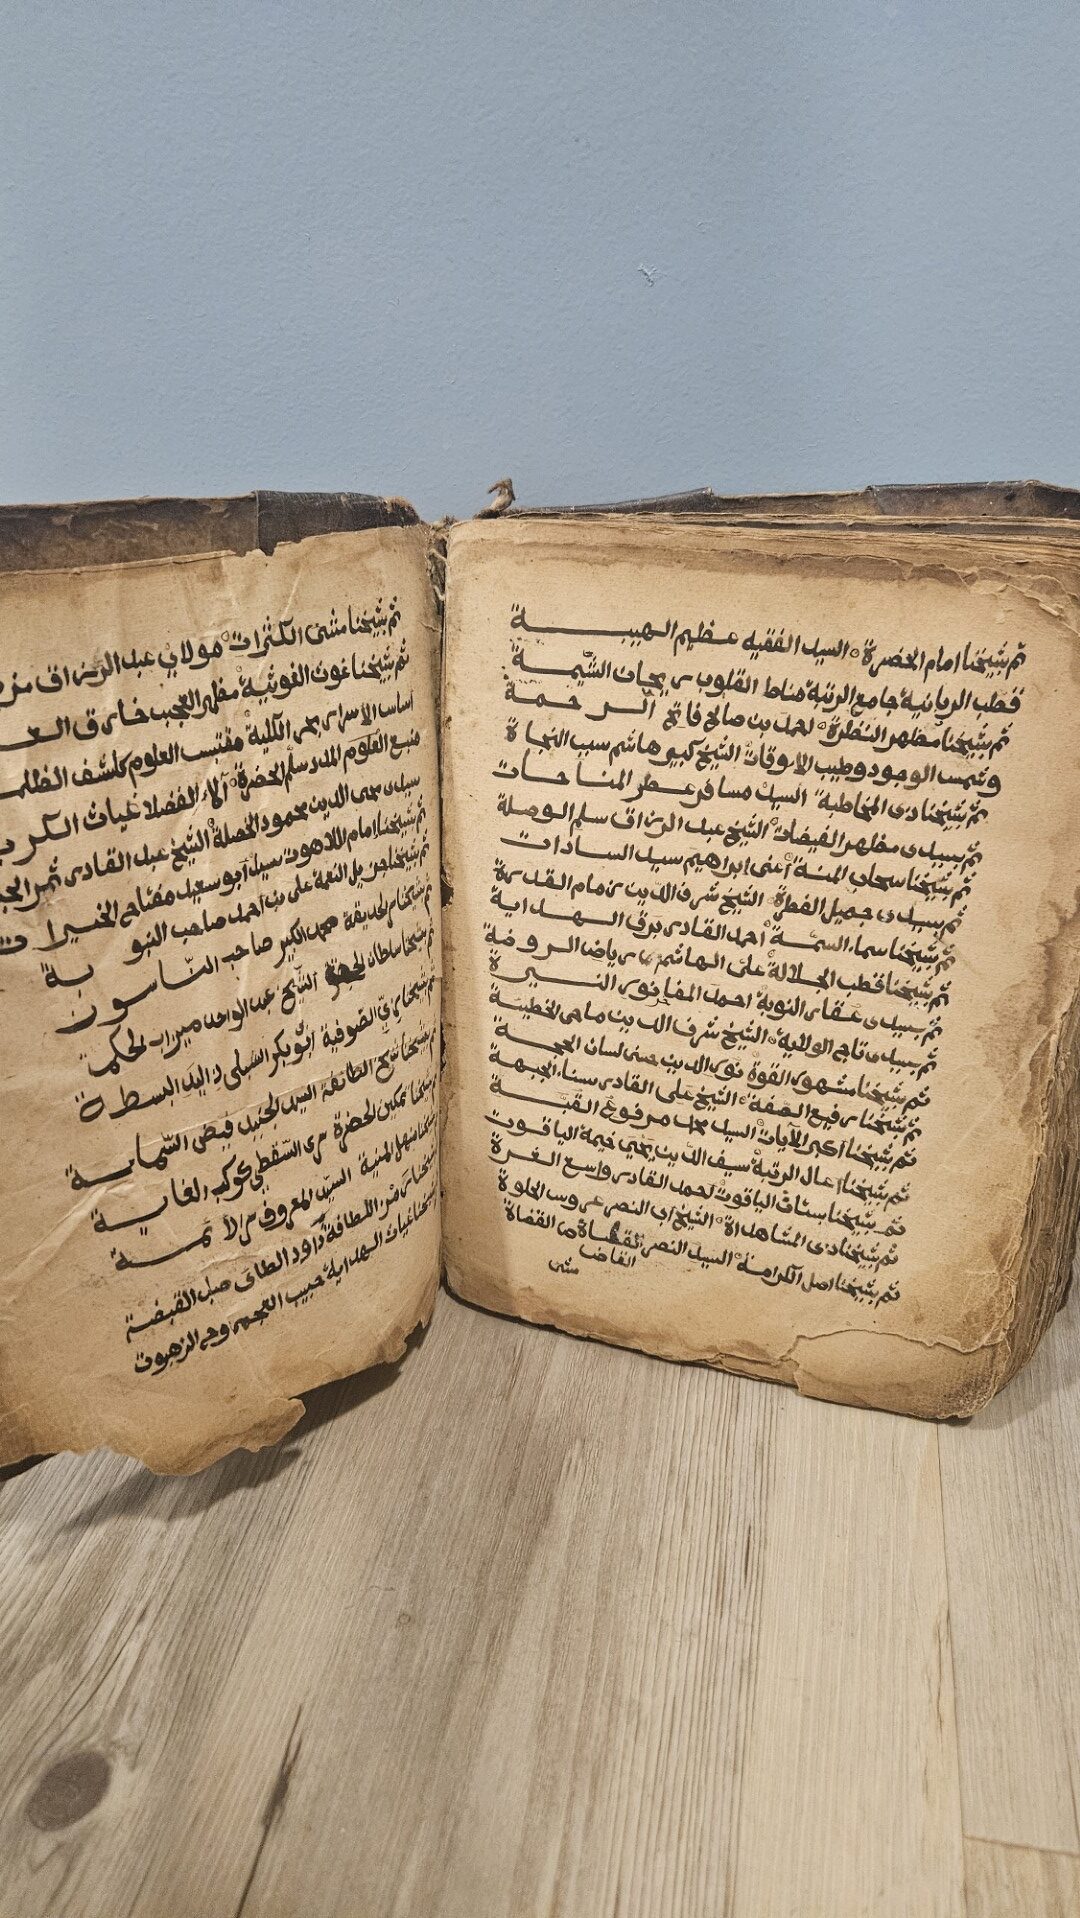 ثم بشيخنا امام الحضرة السيد الفقيه عظيم الهيبة
قطب الربانية جامع الرتبة مناط القلوب ريحان الشيمة
ثم بشيخنا مظهر النظرة احمد بن صالح فاتح الرحمة
وشمس الوجود وطيب الاوقات الشيخ كبير هاشم سبب النجاة
ثم بشيخنا ذى المخاطبة السيد مسافر عطر المناحات
ثم بسيدى مظهر الفيضات الشيخ عبد الرزاق سلم الوصلة
ثم بشيخنا سحاب المنة أعنى ابراهيم سيد السادات
ثم بسيدى جميل الفطرة الشيخ شرف الدين زمام القدرة
ثم بشيخنا سماء السمة أحمد القادرى برق الهداية
ثم بشيخنا قطب الجلالة على الهاشم رياض الروضة
ثم بسيدى عقار النوبة احمد المفا نورى النسيرة
ثم بسيدى تاج الوالية الشيخ شرف الدين ماحى الخطيئة
ثم بشيخنا مشهور القوة نور الدين حسن لسان الحجة
ثم بشيخنا رفيع الصفة الشيخ على القادرى سناء الجبهة
ثم بشيخنا اكبر الآيات السيد محمد مرفوع القبة
ثم بشيخنا عال الرتبة سيف الدين يحيى خيمة الياقوت
ثم بشيخنا بستان الياقوت احمد القادرى واسع الغرة
ثم بشيخنا ذى المشاهداة الشيخ ابى النصر عروس الخلوة
ثم بشيخنا اصل الكرامة السيد النصر القضاة من القضاة
ثم بشيخنا مشى الكثرات مولاي عبد الرزاق
ثم بشيخنا غوث الغوثية مظهر العجيب خارق
اساس الاسرار بحر الكلية مقتبس العلوم كاشف
منبع العلوم المدد سلم الحضرة آلاء الفضلا غياث
سيدى محى الدين محمود الخصلة الشيخ عبد القادرى
ثم بشيخنا امام اللاهوت سيد أبو سعيد مفتاح الخيرات
ثم بشيخنا جزيل النعمة على بن احمد صاحب النوبة
محمد الكبير صاحب الناسوت
بشيخنا سلطان الشيخ عبد الواحد ميزاب الحكمة
الصوفية أبو بكر الشبلى ذ اليد البسطة
بشيخنا شيخ الطائفة السيد الجنيد فيض السماية
بشيخنا تمكين الحضرة سرى السقطى كوكب الغاية
بشيخنا منهل المنية السيد المعروف
اللطافة داود الطائى صيد القبضة
بشيخنا غياث الهداية حبيب العجمى وجه الزهروت